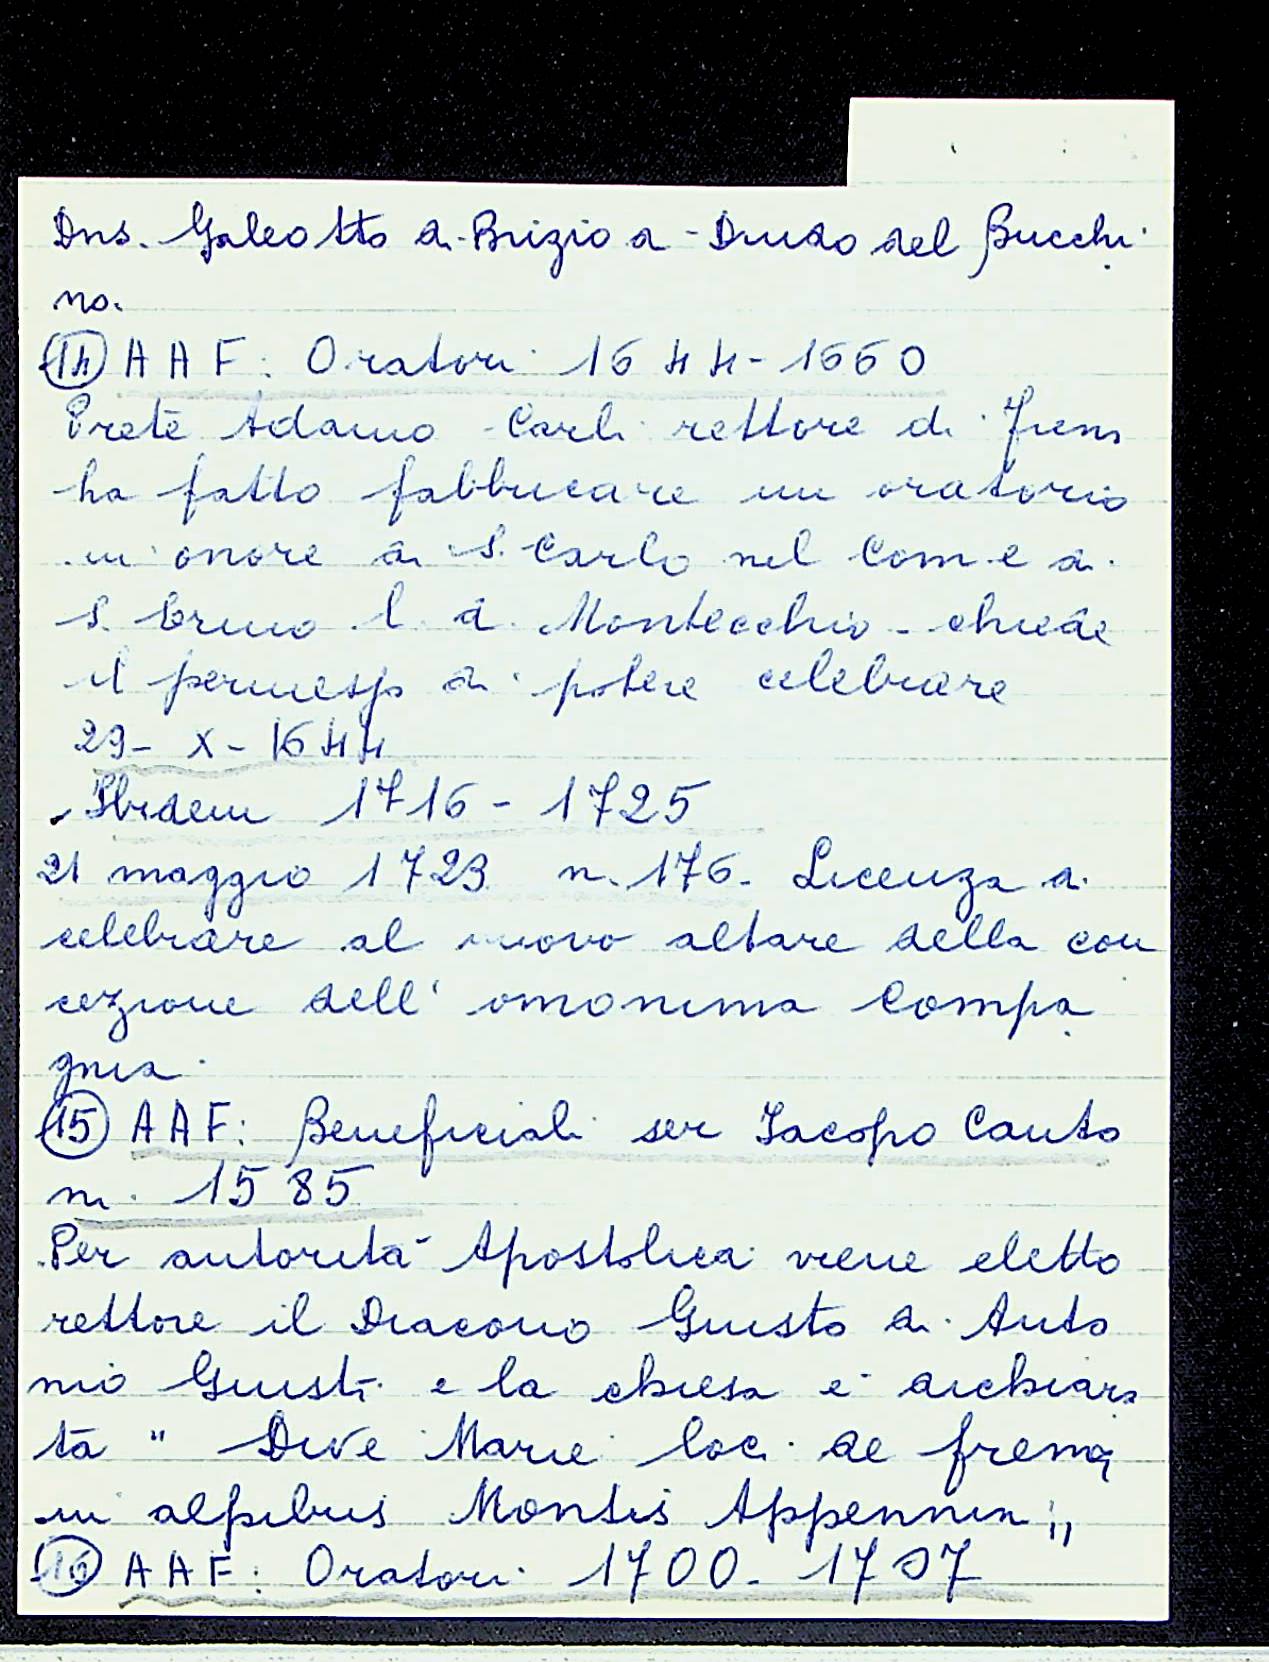 Dns. Galeotto di Brizio di Drudo del Bucchi
no.
14 AAF: Oratori 1644-1660
Prete Adamo Carli rettore di Frena
ha fatto fabbricare un oratorio
in onore di S. Carlo nel Com.e di
S. l. d. Montecchio - chiede
il permesso di potere celebrare
29- X- 1644
Ibidem 1716 - 1725
21 maggio 1723 n. 176. Licenza di
celebrare al nuovo altare della con
cezione dell' omonima Compa
gnia.
15 AAF: Beneficiali ser Jacopo Canto
ni. 1585
Per autorità Apostolica viene eletto
rettore il Diacono Giusto di Anto
nio Giusti e la chiesa è dichiara
ta " Dive Marie loci de frena
in alpibus Montis Appennini "
16 AAF: Oratori 1700- 1707